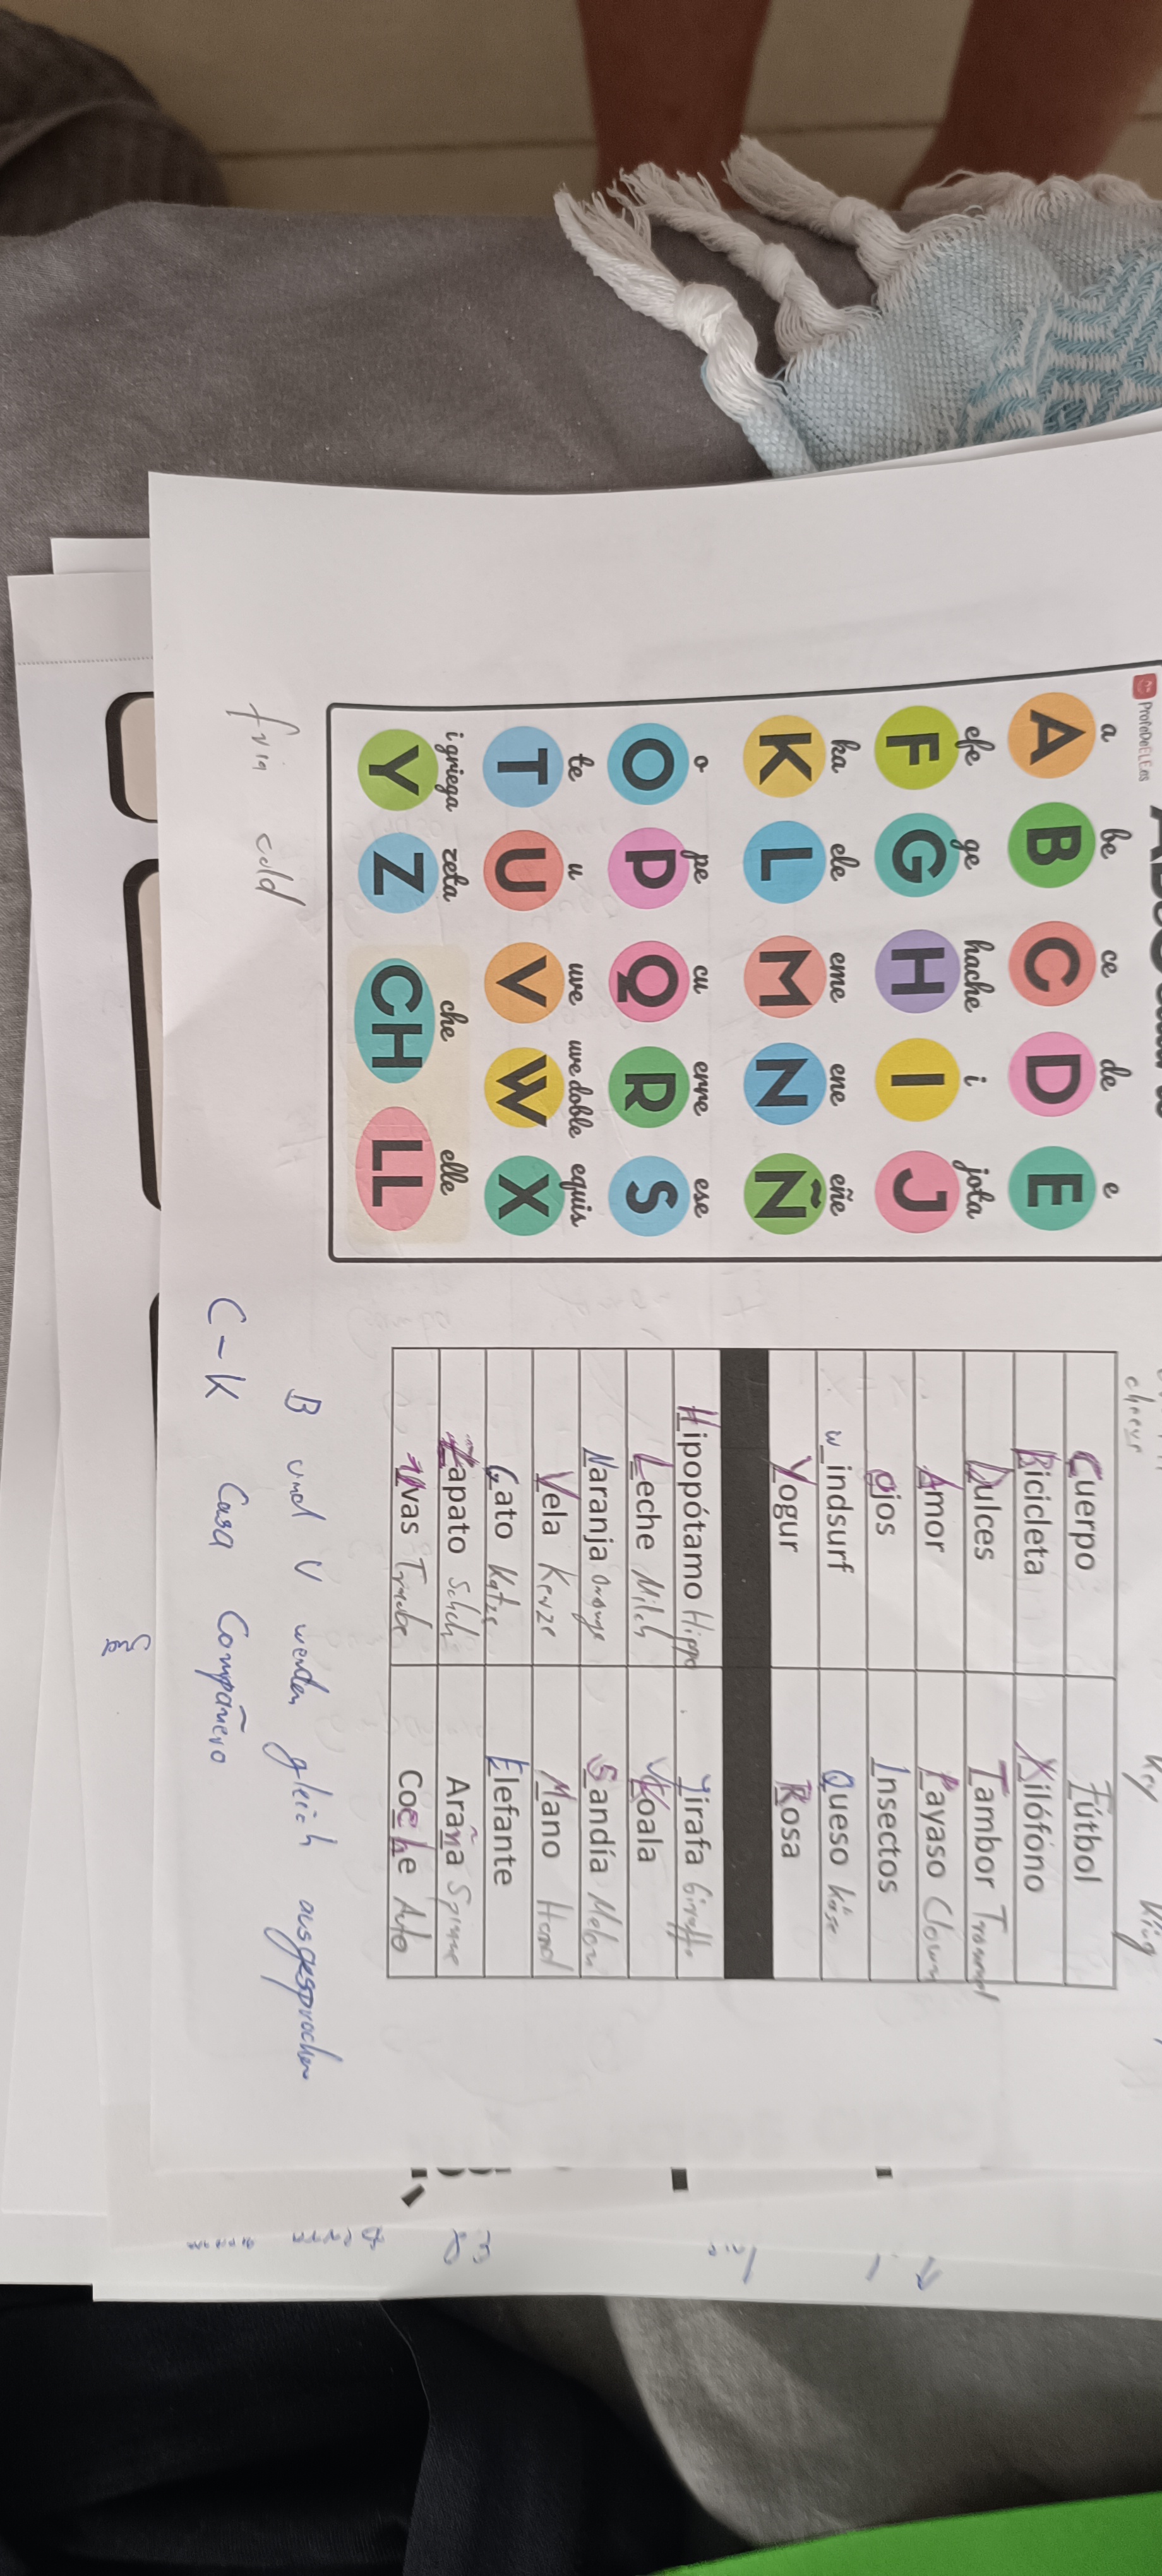 ProfeDeELE.es
a be ce de e
A B C D E
efe ge hache i jota
F G H I J
ka ele eme ene eñe
K L M N Ñ
o pe cu erre ese
O P Q R S
te u uve uve doble equis
T U V W X
i griega zeta che elle
Y Z CH LL
cold
Key King
Cuerpo Fútbol
Bicicleta Xilófóno
Dulces Tambor Trommel
Amor Payaso Clown
ojos Insectos
windsurf Queso Käse
Yogur Rosa
Hipopótamo Hippo Jirafa Giraffe
Leche Milch Koala
Naranja Orange Sandía Melon
Vela Kerze Mano Hand
Gato Katze Elefante
Zapato Schuh Araña Spinne
uvas Traube Coche Auto
B und V werden gleich ausgesprochen
C - K Casa Compañero